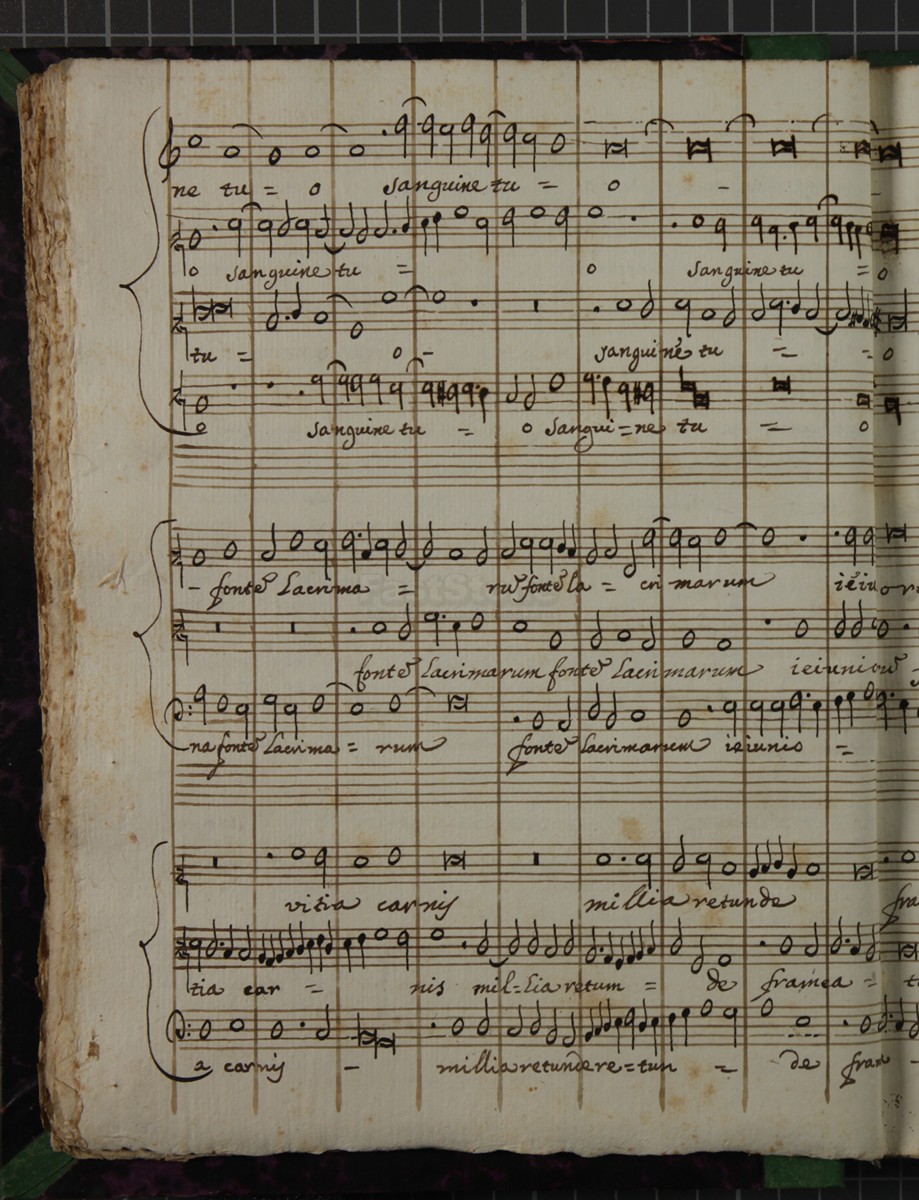 ne tu = o sanguine tu = o -
o sanguine tu = o sanguine tu = o
tu = o - sanguine tu = = o
o sanguine tu = o sangui=ne tu = o
- fontē lacrima = rū fontē la = cri marum
fontē lacrimarum fontē lacrimarum
na fontē lacrima = rum fontē lacrimarum ieiunio =
vitia carnis millia retunde fra
tia car = nis mil=lia retum = de framea = t
a carnis - millia retunde re=tun = de fram -